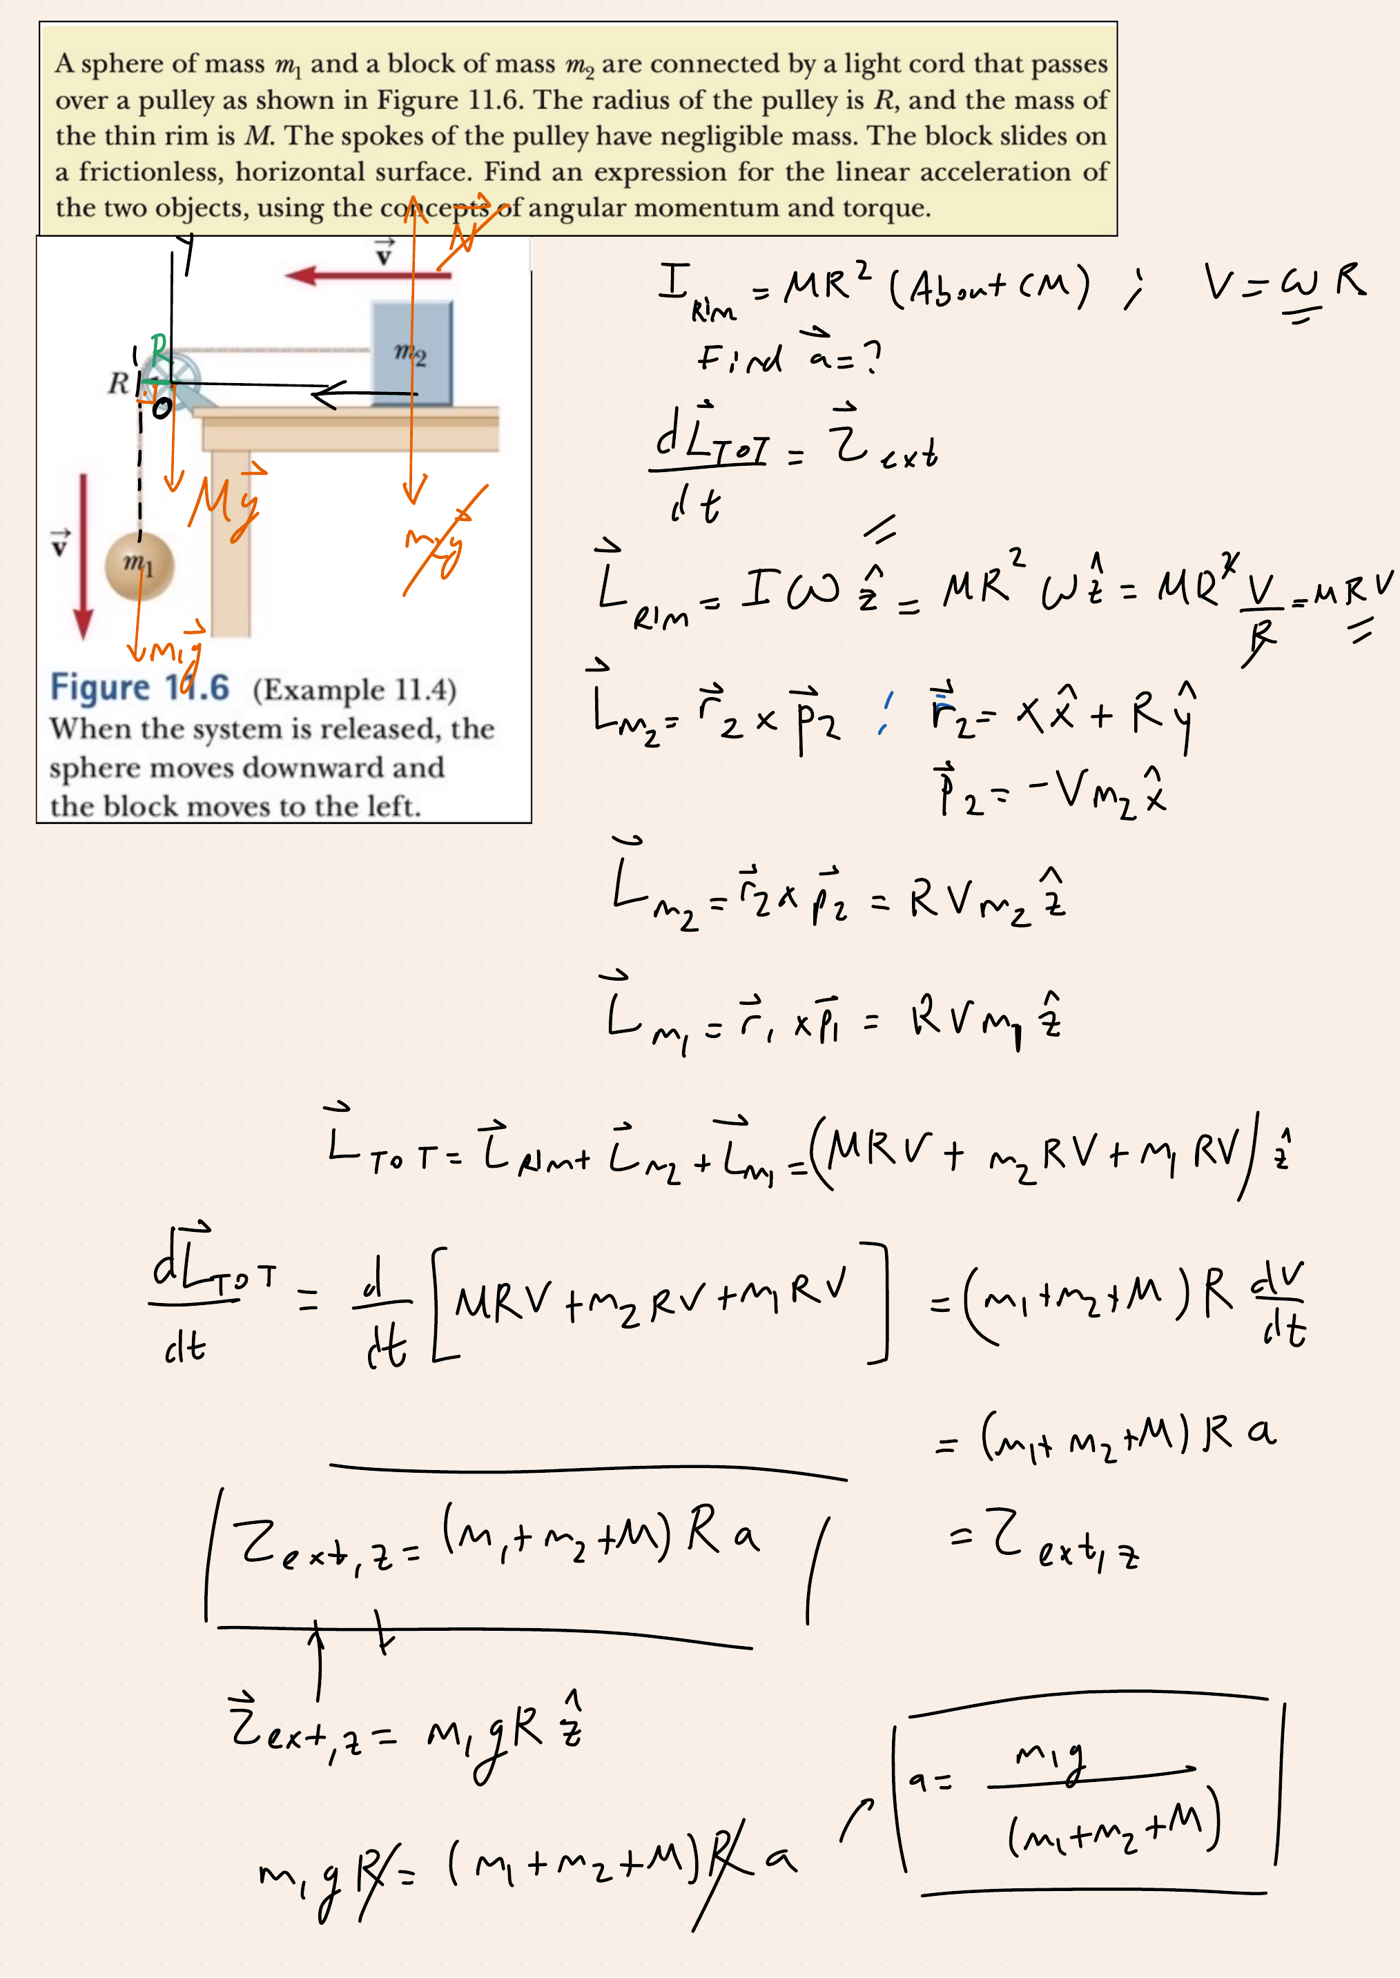 A sphere of mass m₁ and a block of mass m₂ are connected by a light cord that passes
over a pulley as shown in Figure 11.6. The radius of the pulley is R, and the mass of
the thin rim is M. The spokes of the pulley have negligible mass. The block slides on
a frictionless, horizontal surface. Find an expression for the linear acceleration of
the two objects, using the concepts of angular momentum and torque.
y
N⃗
v⃗
m₂
R
R
O
Mg⃗
m₂g⃗
v⃗
m₁
m₁g⃗
Figure 11.6 (Example 11.4)
When the system is released, the
sphere moves downward and
the block moves to the left.
I_Rim = MR² (About CM) ; V = ωR
Find a⃗ = ?
dL⃗_TOT/dt = τ⃗_ext
L⃗_RIM = Iω ẑ = MR² ω ẑ = MR² V/R = MRV
L⃗_m₂ = r⃗₂ × p⃗₂ ; r⃗₂ = x x̂ + R ŷ
p⃗₂ = -V m₂ x̂
L⃗_m₂ = r⃗₂ × p⃗₂ = R V m₂ ẑ
L⃗_m₁ = r⃗₁ × p⃗₁ = R V m₁ ẑ
L⃗_TOT = L⃗_RIM + L⃗_m₂ + L⃗_m₁ = (MRV + m₂RV + m₁RV) ẑ
dL⃗_TOT/dt = d/dt [MRV + m₂RV + m₁RV] = (m₁+m₂+M) R dv/dt
= (m₁+m₂+M) R a
= τ_ext,z
τ_ext,z = (m₁+m₂+M) R a
τ⃗_ext,z = m₁gR ẑ
m₁gR = (m₁+m₂+M) R a
a = m₁g/(m₁+m₂+M)